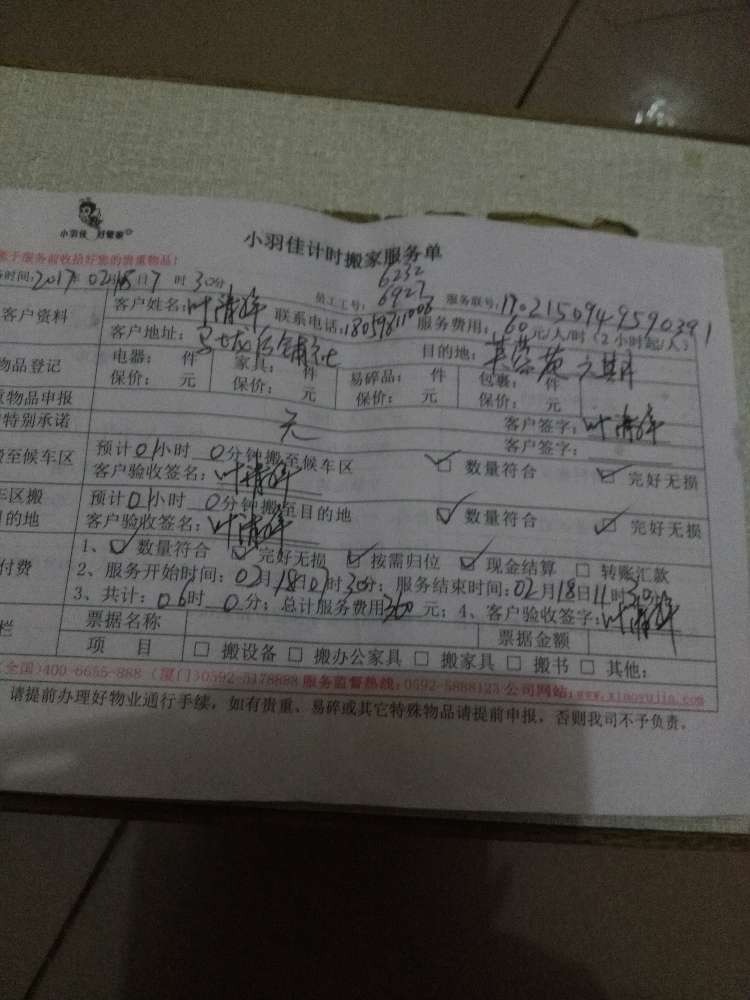 小羽佳 好管家
小羽佳计时搬家服务单
于服务前收拾好您的贵重物品!
时间:2017年02月18日7时30分
员工工号: 6232 6927
服务联号:170215094959039 1
客户资料
客户姓名:叶清
联系电话:18059811006
服务费用:60元/人/时(2小时起/人)
客户地址:
目的地:
物品登记
电器: 件 家具: 件 易碎品: 件 包裹: 件
保价: 元 保价: 元 保价: 元 保价: 元
物品申报
客户签字:叶清
特别承诺
元
客户签字:
至候车区
预计01小时 0分钟搬至候车区 ☑ 数量符合 ☑ 完好无损
客户验收签名:叶清
车区搬
目的地
预计01小时 0分钟搬至目的地 ☑ 数量符合 ☑ 完好无损
客户验收签名:叶清
付费
1、☑ 数量符合 ☑ 完好无损 ☑ 按需归位 ☑ 现金结算 □ 转账汇款
2、服务开始时间:02月18日07时30分;服务结束时间:02月18日11时30分
3、共计:06时 0分;总计服务费用360元;4、客户验收签字:叶清
栏
票据名称 票据金额
项 目 □ 搬设备 □ 搬办公家具 □ 搬家具 □ 搬书 □ 其他:
(全国)400-6655-888 (厦门)0592-5178888 服务监督热线:0592-5888123 公司网站:www.xiaoyujia.com
请提前办理好物业通行手续,如有贵重、易碎或其它特殊物品请提前申报,否则我司不予负责。